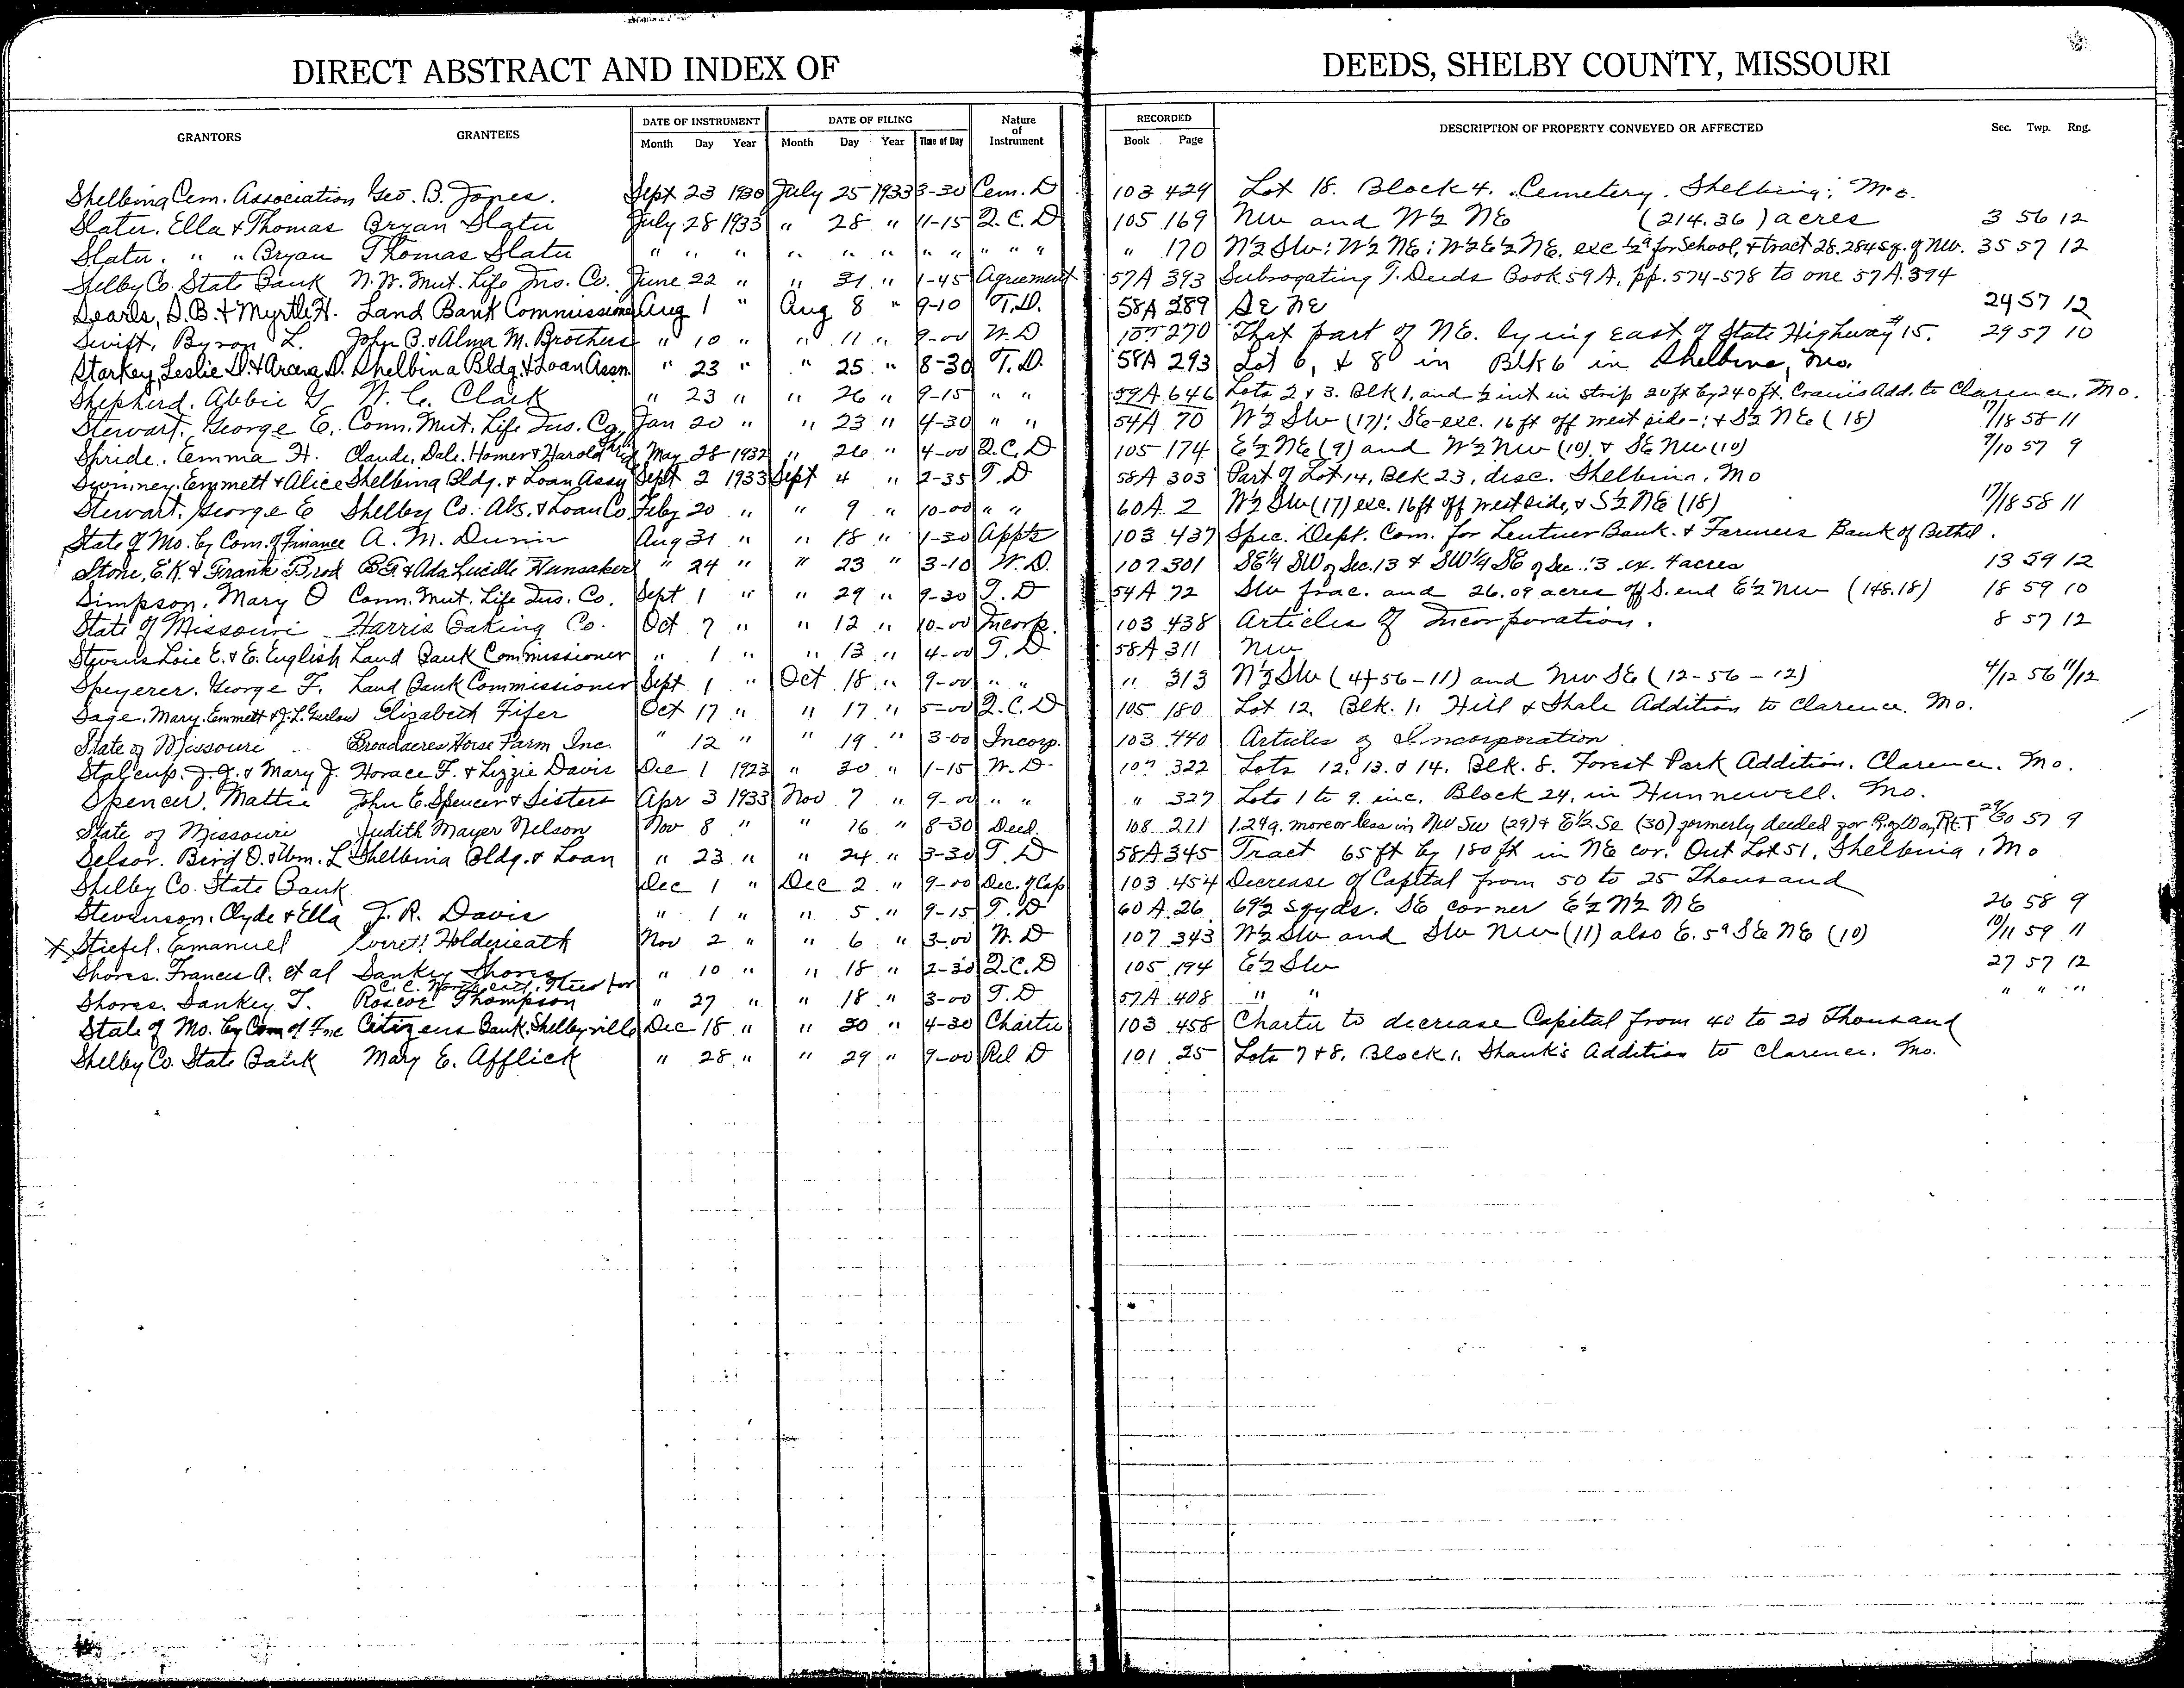 DIRECT ABSTRACT AND INDEX OF DEEDS, SHELBY COUNTY, MISSOURI
GRANTORS GRANTEES DATE OF INSTRUMENT Month Day Year DATE OF FILING Month Day Year Time of Day Nature of Instrument RECORDED Book Page DESCRIPTION OF PROPERTY CONVEYED OR AFFECTED Sec. Twp. Rng.
Shelbina Cem. Association Geo. B. Jones. Sept 23 1930 July 25 1933 3-30 Cem. D 103 429 Lot 18. Block 4. Cemetery. Shelbina; Mo.
Slater. Ella & Thomas Bryan Slater July 28 1933 " 28 " 11-15 Q.C.D 105 169 NW and W½ NE (214.36) acres 3 56 12
Slater. " " Bryan Thomas Slater " " " " " " " " " " " " 170 N½ SW; W½ NE; W½ E½ NE. exc ½ a for School, & tract 28.284 sq. of NW. 35 57 12
Shelby Co. State Bank N.W. Mut. Life Ins. Co. June 22 " " 31 " 1-45 Agreement 57A 393 Subrogating T. Deeds Book 59A, pp. 574-578 to one 57A.394
Searls, D.B. & Myrtle H. Land Bank Commissioner Aug 1 " Aug 8 " 9-10 T.D. 58A 289 SE NE 24 57 12
Swift, Byron L. John B. & Alma M. Brothers " 10 " " 11 " 9-00 W.D 107 270 That part of NE. lying east of State Highway #15. 29 57 10
Starkey, Leslie D. & D. Shelbina Bldg. & Loan Assn. " 23 " " 25 " 8-30 T.D. 58A 293 Lot 6, & 8 in Blk 6 in Shelbina, Mo.
Shepherd. Abbie G W. C. Clark " 23 " " 26 " 9-15 " " 59A 646 Lots 2 & 3. Blk 1, and ½ int in strip 20 ft by 240 ft. Crain's Add. to Clarence. Mo.
Stewart. George E. Conn. Mut. Life Ins. Co. Jan 20 " " 23 " 4-30 " " 54A 70 W½ SW (17); SE-exc. 16 ft off west side-; & S½ NE (18) 17/18 58 11
Spride. Emma H. Claude. Dale. Homer & Harold May 28 1932 " 26 " 4-00 Q.C.D 105 174 E½ NE (9) and W½ NW (10) & SE NW (10) 9/10 57 9
Swinney. Emmett & Alice Shelbina Bldg. & Loan Assn Sept 2 1933 Sept 4 " 2-35 T.D 58A 303 Part of Lot 14, Blk 23, desc. Shelbina. Mo
Stewart. George E Shelby Co. Abs. & Loan Co Feby 20 " " 9 " 10-00 " " 60A. 2 W½ SW (17) exc. 16 ft off west side, & S½ NE (18) 17/18 58 11
State of Mo. by Com. of Finance A. M. Dunn Aug 31 " " 18 " 1-30 Appt 103 437 Spec. Dept. Com. for Lentner Bank. & Farmers Bank of Bethel.
Stone, E.K. & Frank Brod & Ada Lucille Hunsaker " 24 " " 23 " 3-10 W.D. 107 301 SE¼ SW of Sec. 13 & SW¼ SE of Sec. 13 ex. 4 acres 13 59 12
Simpson. Mary O Conn. Mut. Life Ins. Co. Sept 1 " " 29 " 9-30 T.D 54A 72 SW frac. and 26.09 acres off S. end E½ NW (148.18) 18 59 10
State of Missouri Harris Baking Co. Oct 7 " " 12 " 10-00 Incorp. 103 438 Articles of Incorporation. 8 57 12
Stevens Loie E. & E. English Land Bank Commissioner " 1 " " 13 " 4-00 T.D 58A 311 NW
Speyerer. George F. Land Bank Commissioner Sept 1 " Oct 18 " 9-00 " " " 313 N½ SW (4-56-11) and NW SE (12-56-12) 4/12 56 11/12
Sage. Mary. Emmett & J.L. Elizabeth Fifer Oct 17 " " 17 " 5-00 Q.C.D 105 180 Lot 12, Blk. 1. Hill & Shale Addition to Clarence. Mo.
State of Missouri Broadacres Horse Farm Inc. " 12 " " 19 " 3-00 Incorp. 103 440 Articles of Incorporation
Stalcup. J.J. & Mary J. Horace F. & Lizzie Davis Dec 1 1923 " 30 " 1-15 W.D. 107 322 Lots 12, 13. & 14. Blk. 8. Forest Park Addition. Clarence. Mo.
Spencer, Mattie John E. Spencer & Sisters Apr 3 1933 Nov 7 " 9-00 " " " 327 Lots 1 to 9. inc. Block 24. in Hunnewell. Mo.
State of Missouri Judith Mayer Nelson Nov 8 " " 16 " 8-30 Deed. 108 211 1.24 a. more or less in NW SW (29) & E½ SE (30) formerly deeded for R. of Way 29/30 57 9
Selsor. Bird O. & Wm. L Shelbina Bldg. & Loan " 23 " " 24 " 3-30 T.D 58A 345 Tract 65 ft by 180 ft in NE cor. Out Lot 51. Shelbina, Mo
Shelby Co. State Bank Dec 1 " Dec 2 " 9-00 Dec. of Cap 103 454 Decrease of Capital from 50 to 25 Thousand
Stevenson. Clyde & Ella J. R. Davis " 1 " " 5 " 9-15 T.D 60A. 26 69½ Sq yds. SE corner E½ W½ NE 26 58 9
x Stiefel. Emanuel Everett Holderieath Nov 2 " " 6 " 3-00 W.D 107 343 W½ SW and SW NW (11) also E. 5a SE NE (10) 10/11 59 11
Shores. Frances A. et al Sankey Shores " 10 " " 18 " 2-30 Q.C.D 105 194 E½ SW 27 57 12
C. C. Northcutt, Ttee for
Shores. Sankey T. Roscoe Thompson " 27 " " 18 " 3-00 T.D 57A 408 " " " " "
State of Mo. by Com of Fne Citizens Bank. Shelbyville Dec 18 " " 20 " 4-30 Charter 103 458 Charter to decrease Capital from 40 to 20 Thousand
Shelby Co. State Bank Mary E. Afflick " 28 " " 29 " 9-00 Rel D 101 25 Lots 7 & 8. Block 1. Shank's Addition to Clarence. Mo.